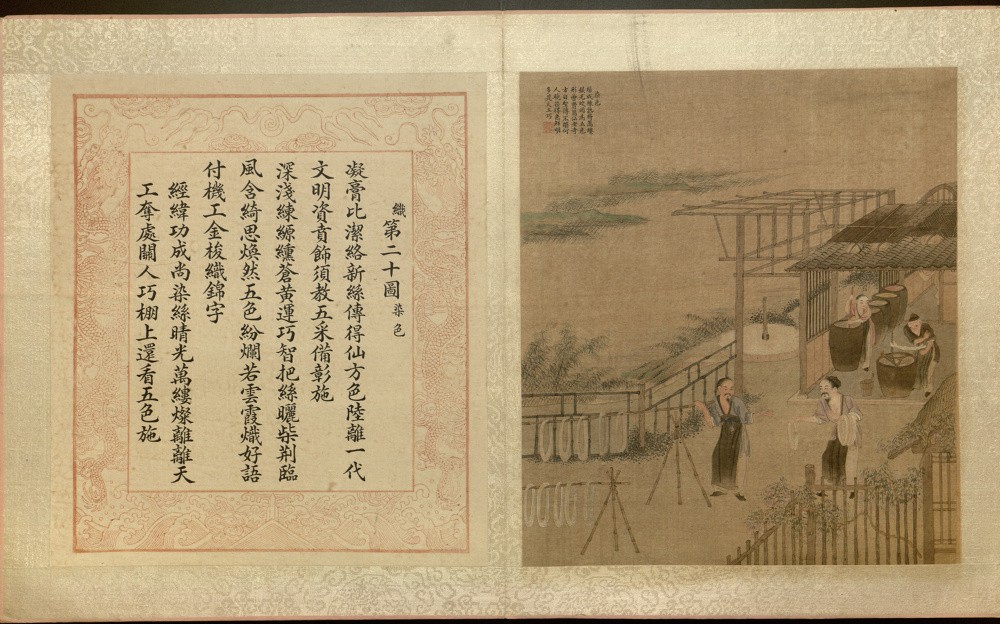 染色
織第二十圖 染色
凝膏比潔絡新絲傳得仙方色陸離一代
文明資賁飾須教五采備彰施
深淺練縓纁蒼黃運巧智把絲曬柴荊臨
風含綺思煥然五色紛爛若雲霞熾好語
付機工金梭織錦字
經緯功成尚染絲晴光萬縷燦離離天
工奪處關人巧棚上還看五色施